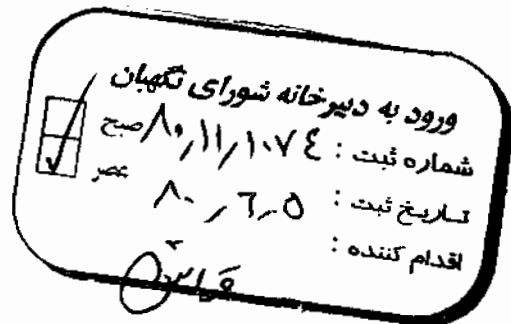 ورود به دبیرخانه شورای نگهبان
شماره ثبت : ۸۰٫۱۱٫۱۰۷٤ صبح
تاریخ ثبت : ۸۰٫٦٫۵ عصر
اقدام کننده :